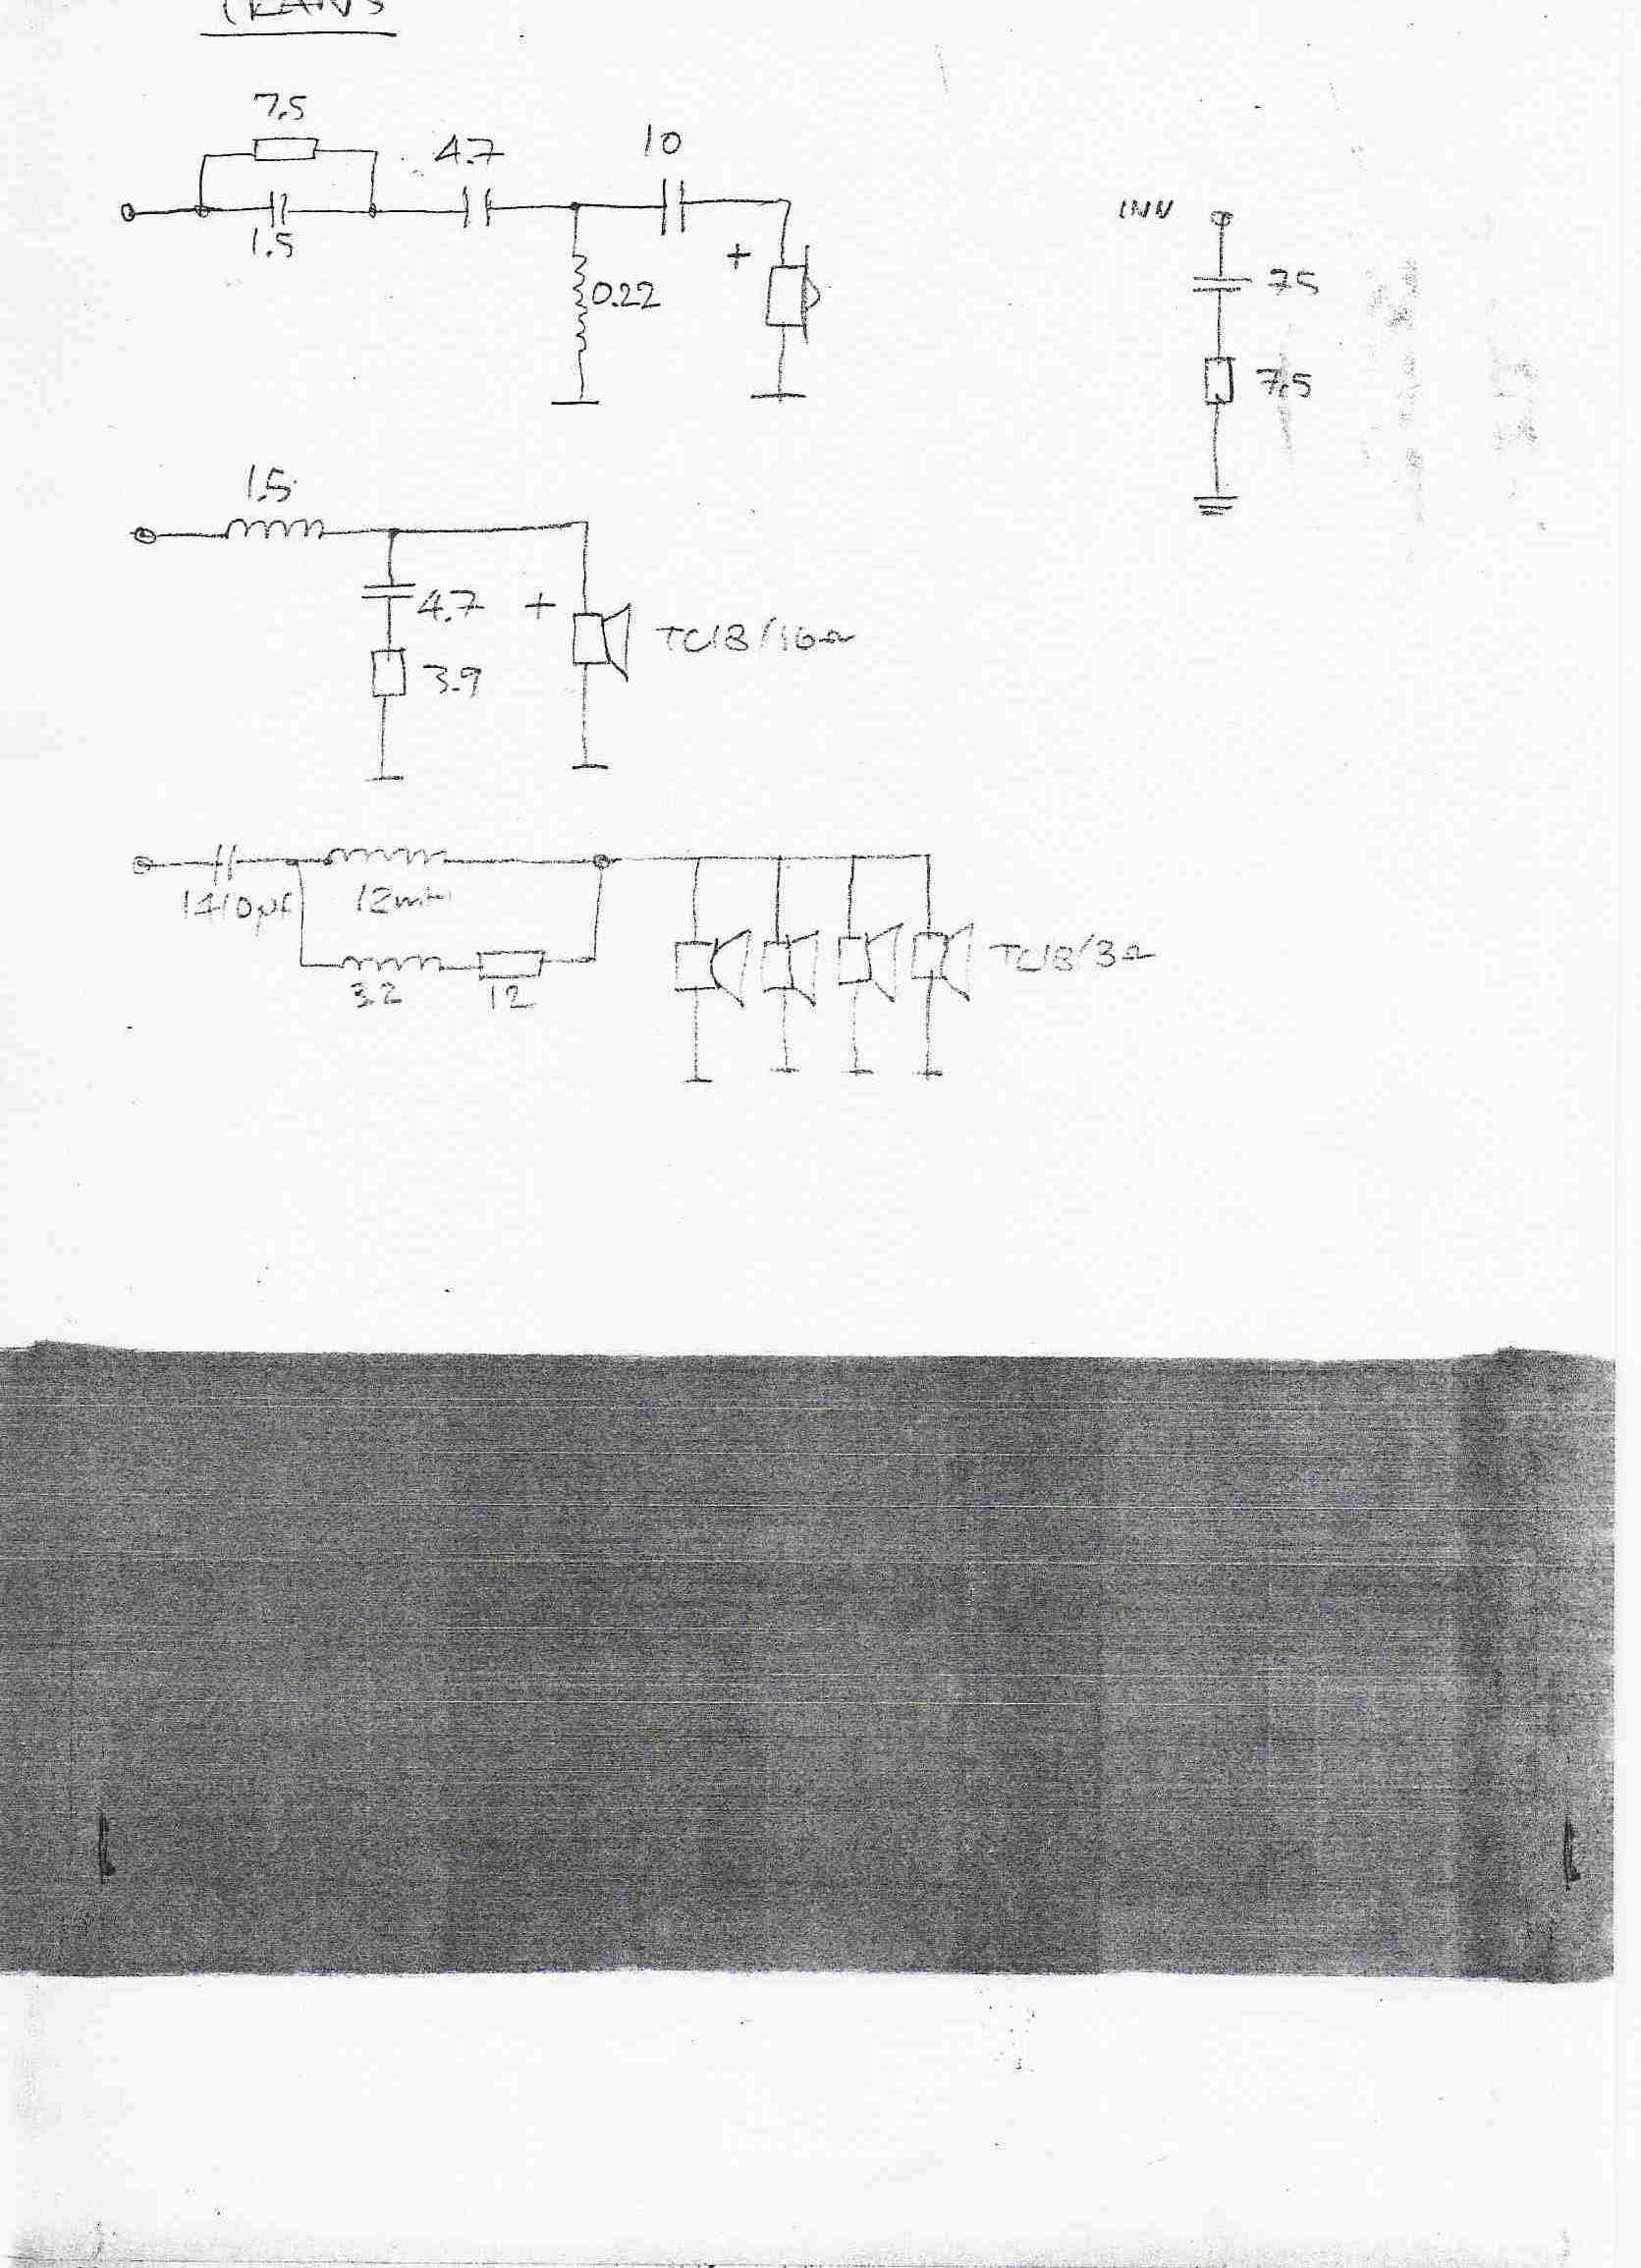 7.5
4.7
10
1.5
+
0.22
INN
75
7.5
1.5
4.7
+
TC18/16Ω
3.9
12mH
3.2
12
TC18/3Ω